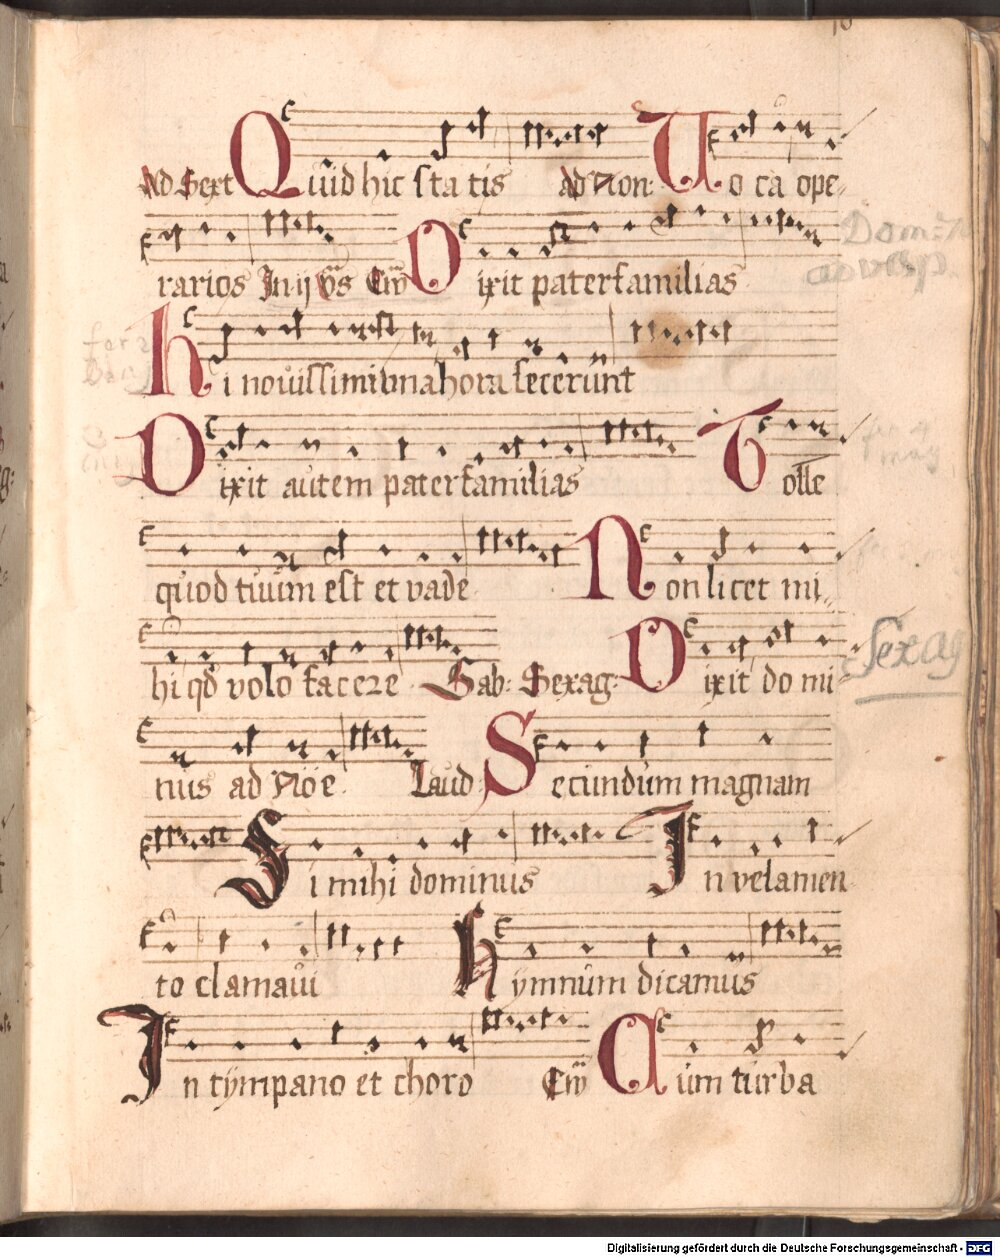 10
Ad Sext Quid hic sta tis ad Non: Uo ca ope-
rarios In ij vs Ew Dixit paterfamilias
Hi novissimi vna hora fecerunt
Dixit autem paterfamilias Tolle
quod tuum est et vade Non licet mi-
hi qd volo facere Sab: Sexag: Dixit do mi-
nus ad Noe Laud Secundum magnam
Si mihi dominus In velamen
to clamavi Hymnum dicamus
In tympano et choro Ew Cum turba
ad vesp.
Sexag
Digitalisierung gefördert durch die Deutsche Forschungsgemeinschaft - DFG